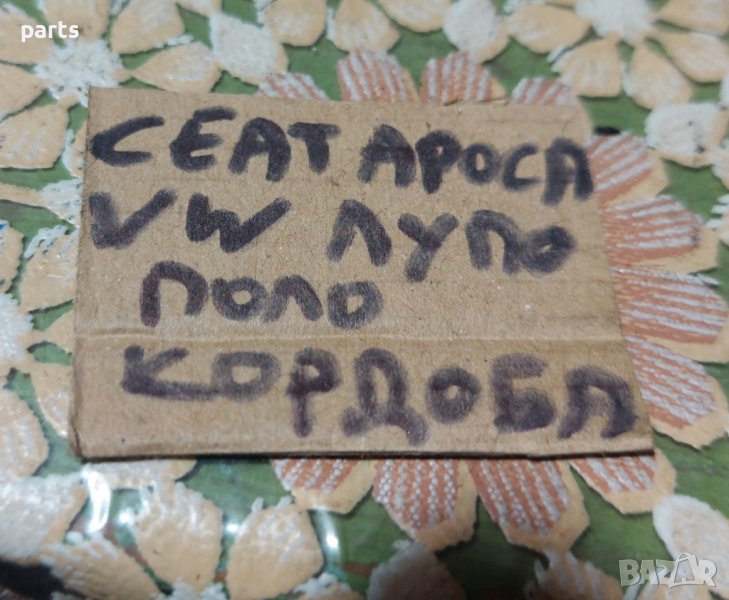 parts
СЕАТ АРОСА
VW ЛУПО
ПОЛО
КОРДОБА
BAZAR